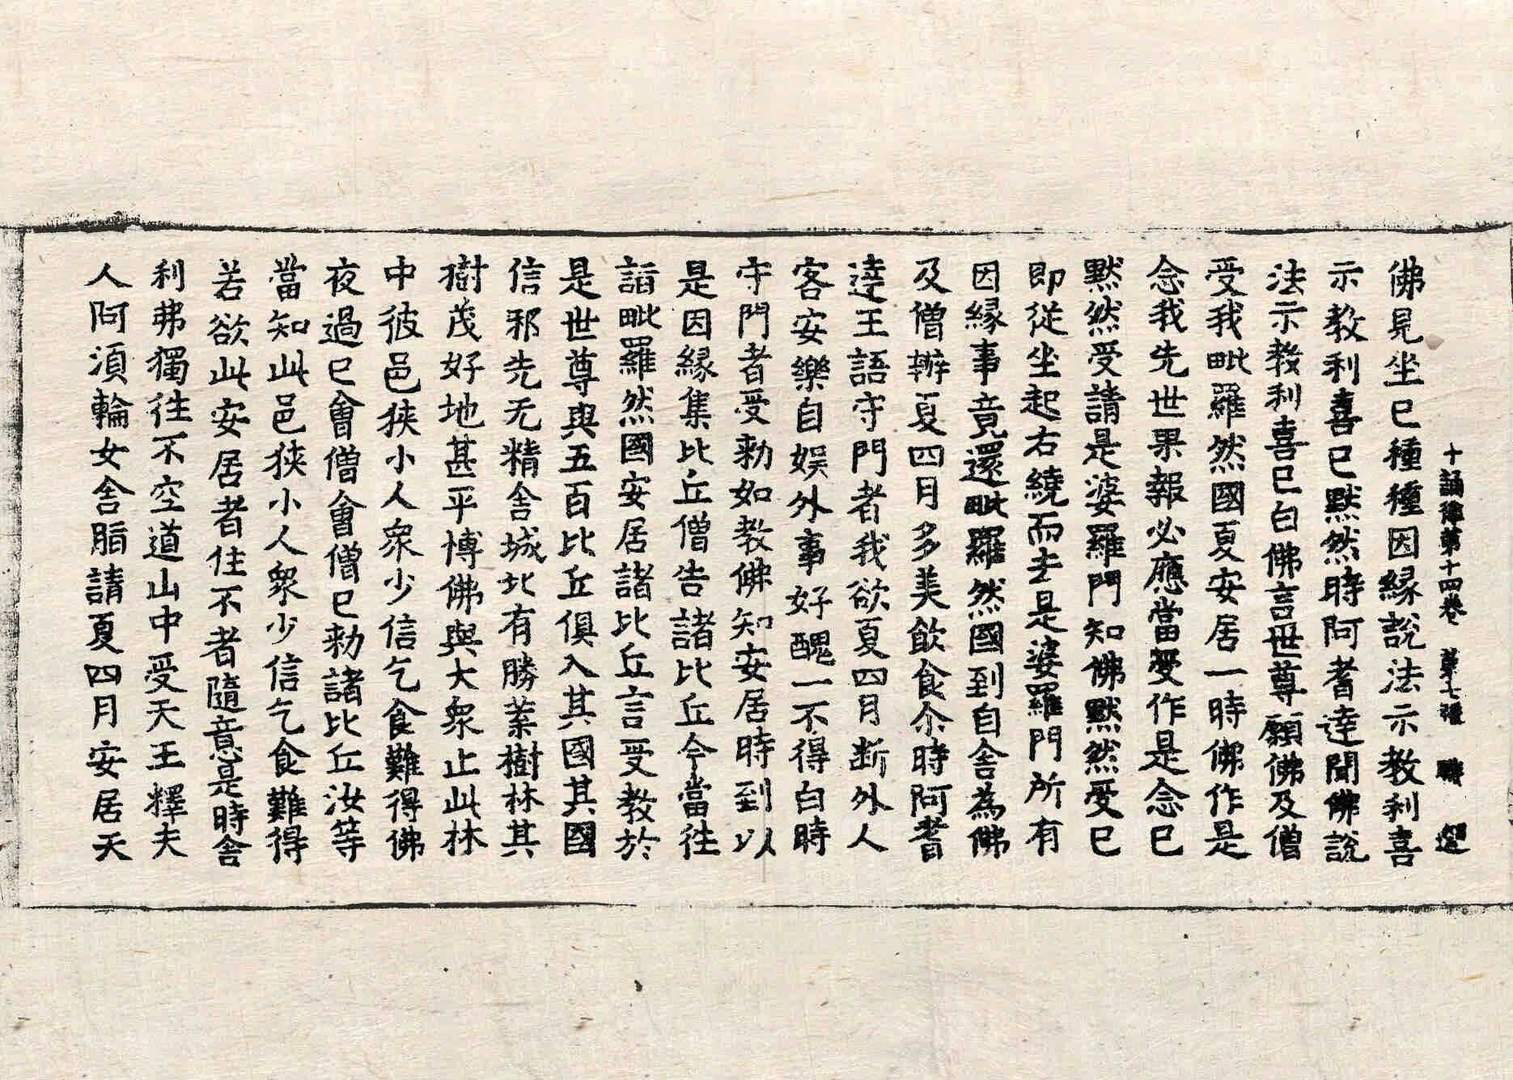 十誦律第十四卷　第七張　聽
佛見坐已種種因緣說法示教利喜
示教利喜已默然時阿耆達聞佛說
法示教利喜已白佛言世尊願佛及僧
受我毗羅然國夏安居一時佛作是
念我先世果報必應當受作是念已
默然受請是婆羅門知佛默然受已
即從坐起右繞而去是婆羅門所有
因緣事竟還毗羅然國到自舍為佛
及僧辦夏四月多美飲食尒時阿耆
達王語守門者我欲夏四月断外人
客安樂自娛外事好醜一不得白時
守門者受勑如教佛知安居時到以
是因緣集比丘僧告諸比丘今當往
詣毗羅然國安居諸比丘言受教於
是世尊與五百比丘俱入其國其國
信邪先无精舍城北有勝葉樹林其
樹茂好地甚平博佛與大眾止此林
中彼邑狹小人眾少信乞食難得佛
夜過已會僧會僧已勑諸比丘汝等
當知此邑狹小人眾少信乞食難得
若欲此安居者住不者隨意是時舍
利弗獨往不空道山中受天王釋夫
人阿須輪女舍脂請夏四月安居天